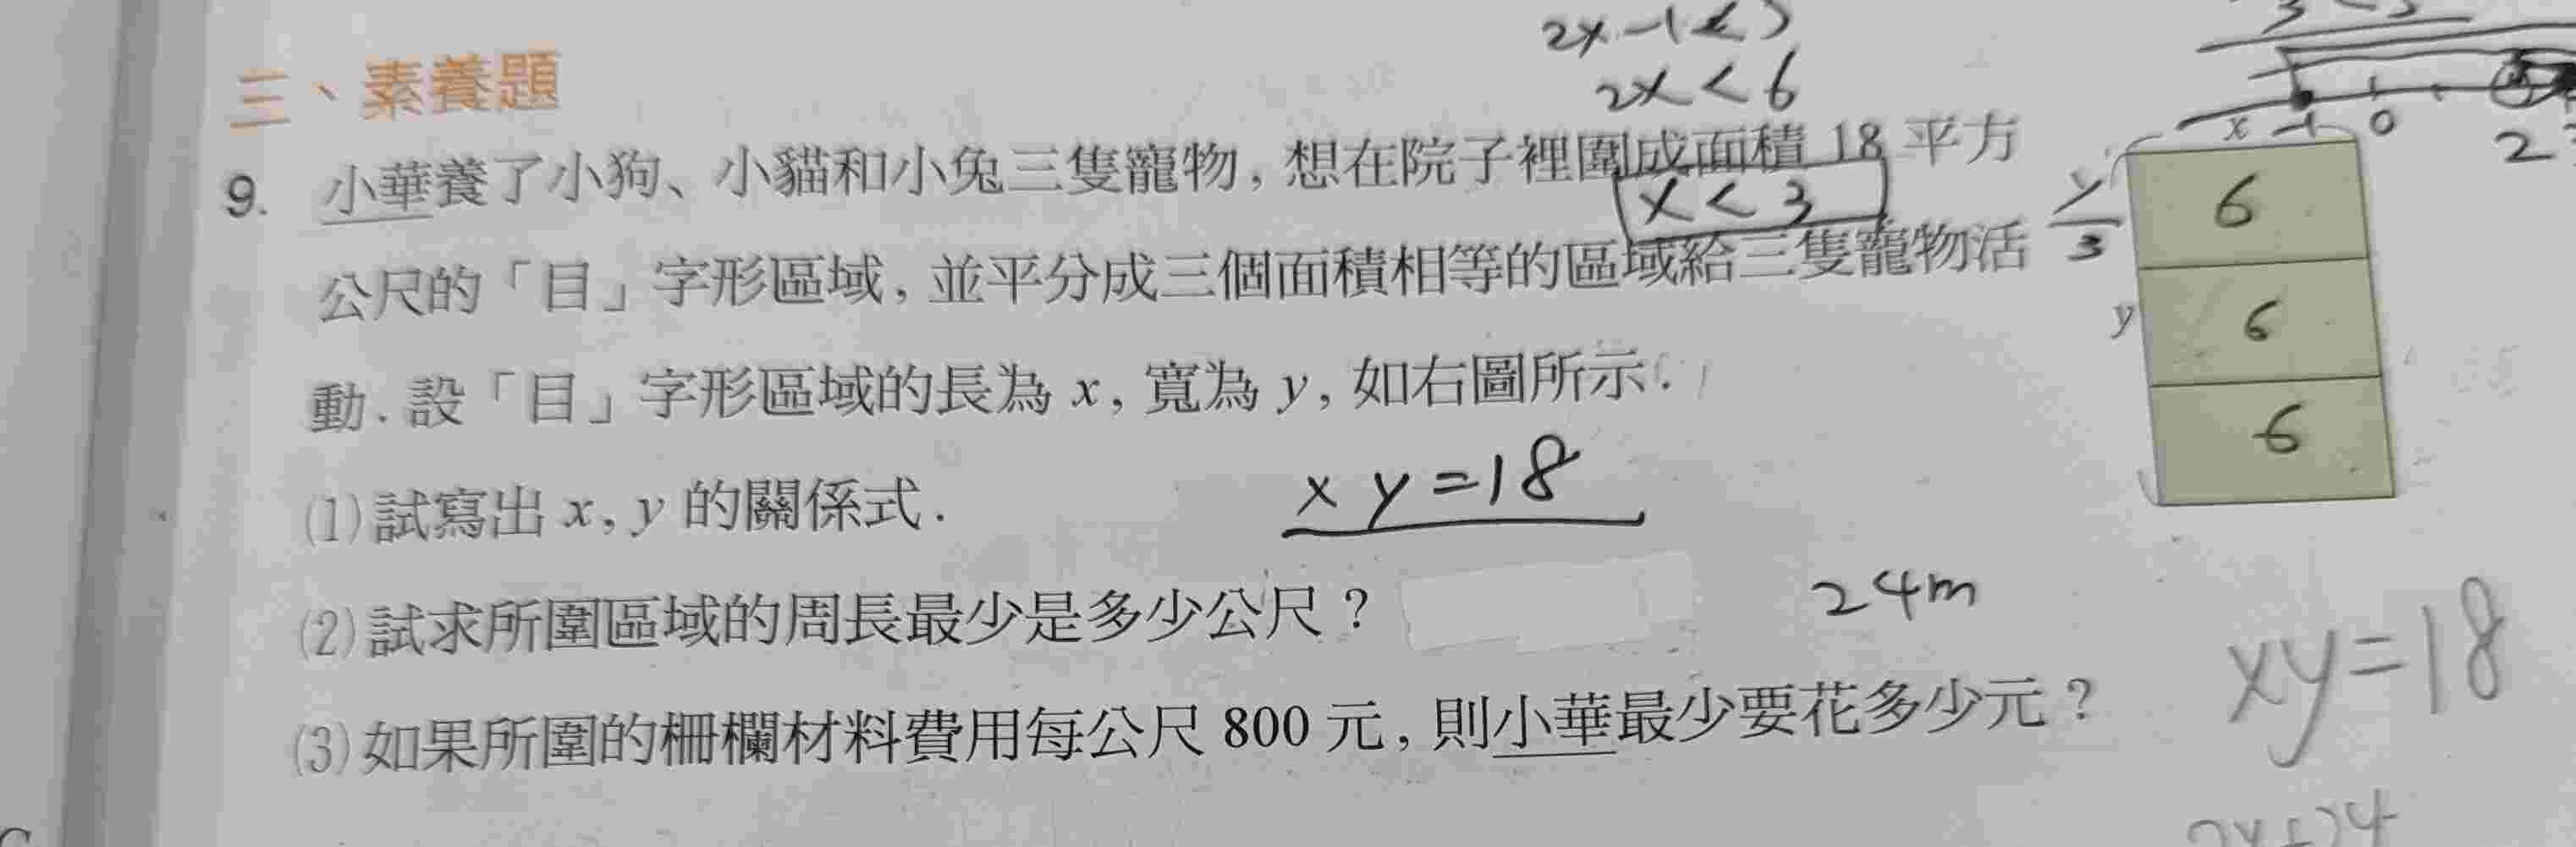 2x-1<
2x<6
三、素養題
9. 小華養了小狗、小貓和小兔三隻寵物,想在院子裡圍成面積 18 平方
x<3
公尺的「目」字形區域,並平分成三個面積相等的區域給三隻寵物活
動.設「目」字形區域的長為 x,寬為 y,如右圖所示.
x
-1 0
2
y/3
6
y
6
6
(1)試寫出 x, y 的關係式.
xy=18
(2)試求所圍區域的周長最少是多少公尺?
24m
xy=18
(3)如果所圍的柵欄材料費用每公尺 800 元,則小華最少要花多少元?